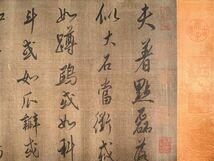 夫著點磊落
似大石當衢或
如蹲鴟或如科
斗或如瓜瓣或